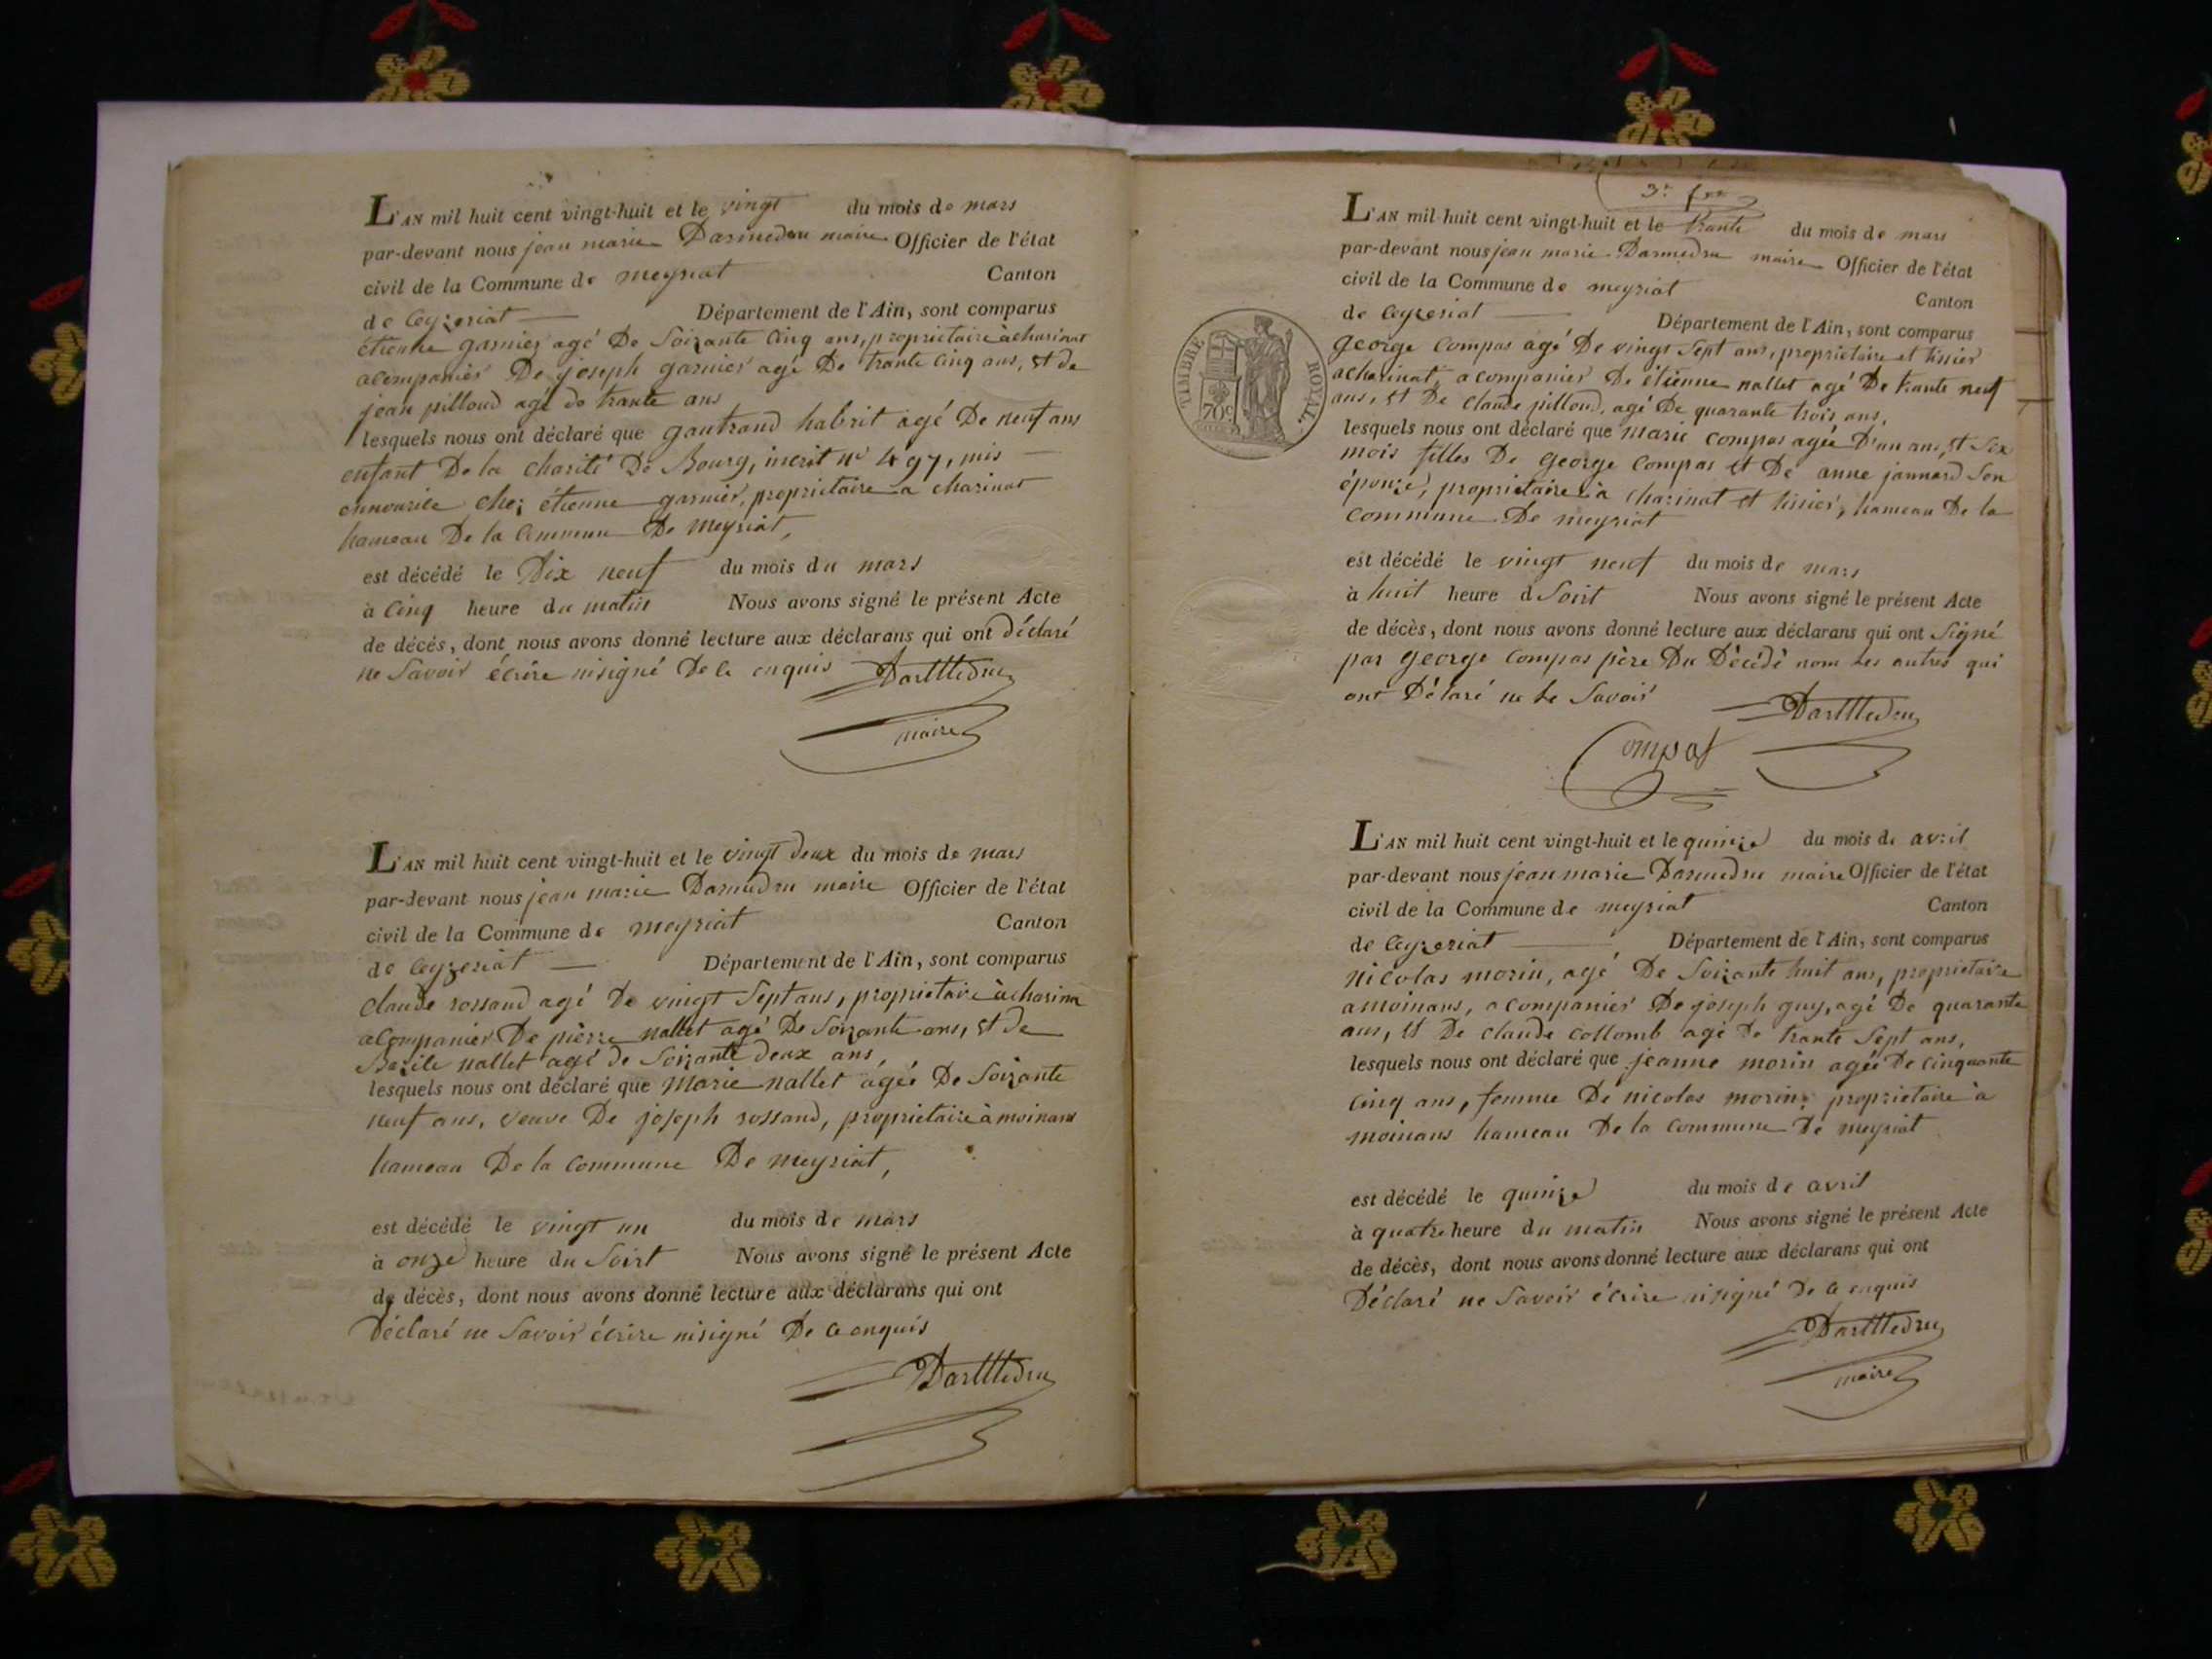 L'AN mil huit cent vingt-huit et le vingt du mois de mars
par-devant nous jean marie Darmedru maire Officier de l'état
civil de la Commune de meyriat Canton
de Ceyzeriat Département de l'Ain, sont comparus
étienne garnier agé De Soizante Cinq ans, proprietaire à charinat
acompanier De joseph garnier agé De trante Cinq ans, et de
jean pilloud agé de trante ans
lesquels nous ont déclaré que gautrand habrit agé De neuf ans
enfant De la charité De Bourg, inscrit n° 497, mis
ennourice chez étienne garnier, proprietaire a charinat
hameau De la Commune De meyriat,
est décédé le Dix neuf du mois du mars
à Cinq heure du matin Nous avons signé le présent Acte
de décés, dont nous avons donné lecture aux déclarans qui ont déclaré
ne Savoir écrire nisigné De ce enquis Darmedru
maire
L'AN mil huit cent vingt-huit et le vingt deux du mois de mars
par-devant nous jean marie Darmedru maire Officier de l'état
civil de la Commune de meyriat Canton
de Ceyzeriat Département de l'Ain, sont comparus
claude rossand agé De vingt Sept ans, proprietaire à charina
acompanier De pierre nallet agé De Soizante ans, et de
Bazile nallet agé de Soizante deux ans,
lesquels nous ont déclaré que Marie nallet agée De Soizante
neuf ans, veuve De joseph rossand, proprietaire à moinans
hameau De la Commune De meyriat,
est décédé le vingt un du mois de mars
à onze heure du Soirt Nous avons signé le présent Acte
de décès, dont nous avons donné lecture aux déclarans qui ont
Déclaré ne Savoir écrire nisigné De ce enquis
Darmedru
3e
L'AN mil huit cent vingt-huit et le trante du mois de mars
par-devant nous jean marie Darmedru maire Officier de l'état
civil de la Commune de meyriat Canton
de Ceyzeriat Département de l'Ain, sont comparus
TIMBRE ROYAL.
70c
george Compas agé De vingt Sept ans, proprietaire et tisier
acharinat, acompanier De étienne nallet agé De trante neuf
ans, et De Claude pilloud, agé De quarante trois ans,
lesquels nous ont déclaré que Marie Compas agée D'un ans, et Six
mois filles De George Compas et De anne jannard Son
épouze, proprietaire à charinat et tisier, hameau De la
Commune De meyriat
est décédé le vingt neuf du mois de mars
à huit heure d Soirt Nous avons signé le présent Acte
de décès, dont nous avons donné lecture aux déclarans qui ont Signé
par George Compas père Du Décédé nom les autres qui
ont Délaré ne le Savoir
Darmedru
Compas
L'AN mil huit cent vingt-huit et le quinze du mois de avril
par-devant nous jean marie Darmedru maire Officier de l'état
civil de la Commune de meyriat Canton
de Ceyzeriat Département de l'Ain, sont comparus
nicolas morin, agé De Soizante huit ans, proprietaire
a moinans, acompanier De joseph guy, agé De quarante
ans, et De claude Collomb agé De trante Sept ans,
lesquels nous ont déclaré que jeanne morin agée De Cinquante
Cinq ans, femme De nicolas morin, proprietaire à
moinans hameau De la Commune De meyriat
est décédé le quinze du mois de avril
à quatre heure du matin Nous avons signé le présent Acte
de décès, dont nous avons donné lecture aux déclarans qui ont
Déclaré ne Savoir écrire nisigné De ce enquis
Darmedru
maire